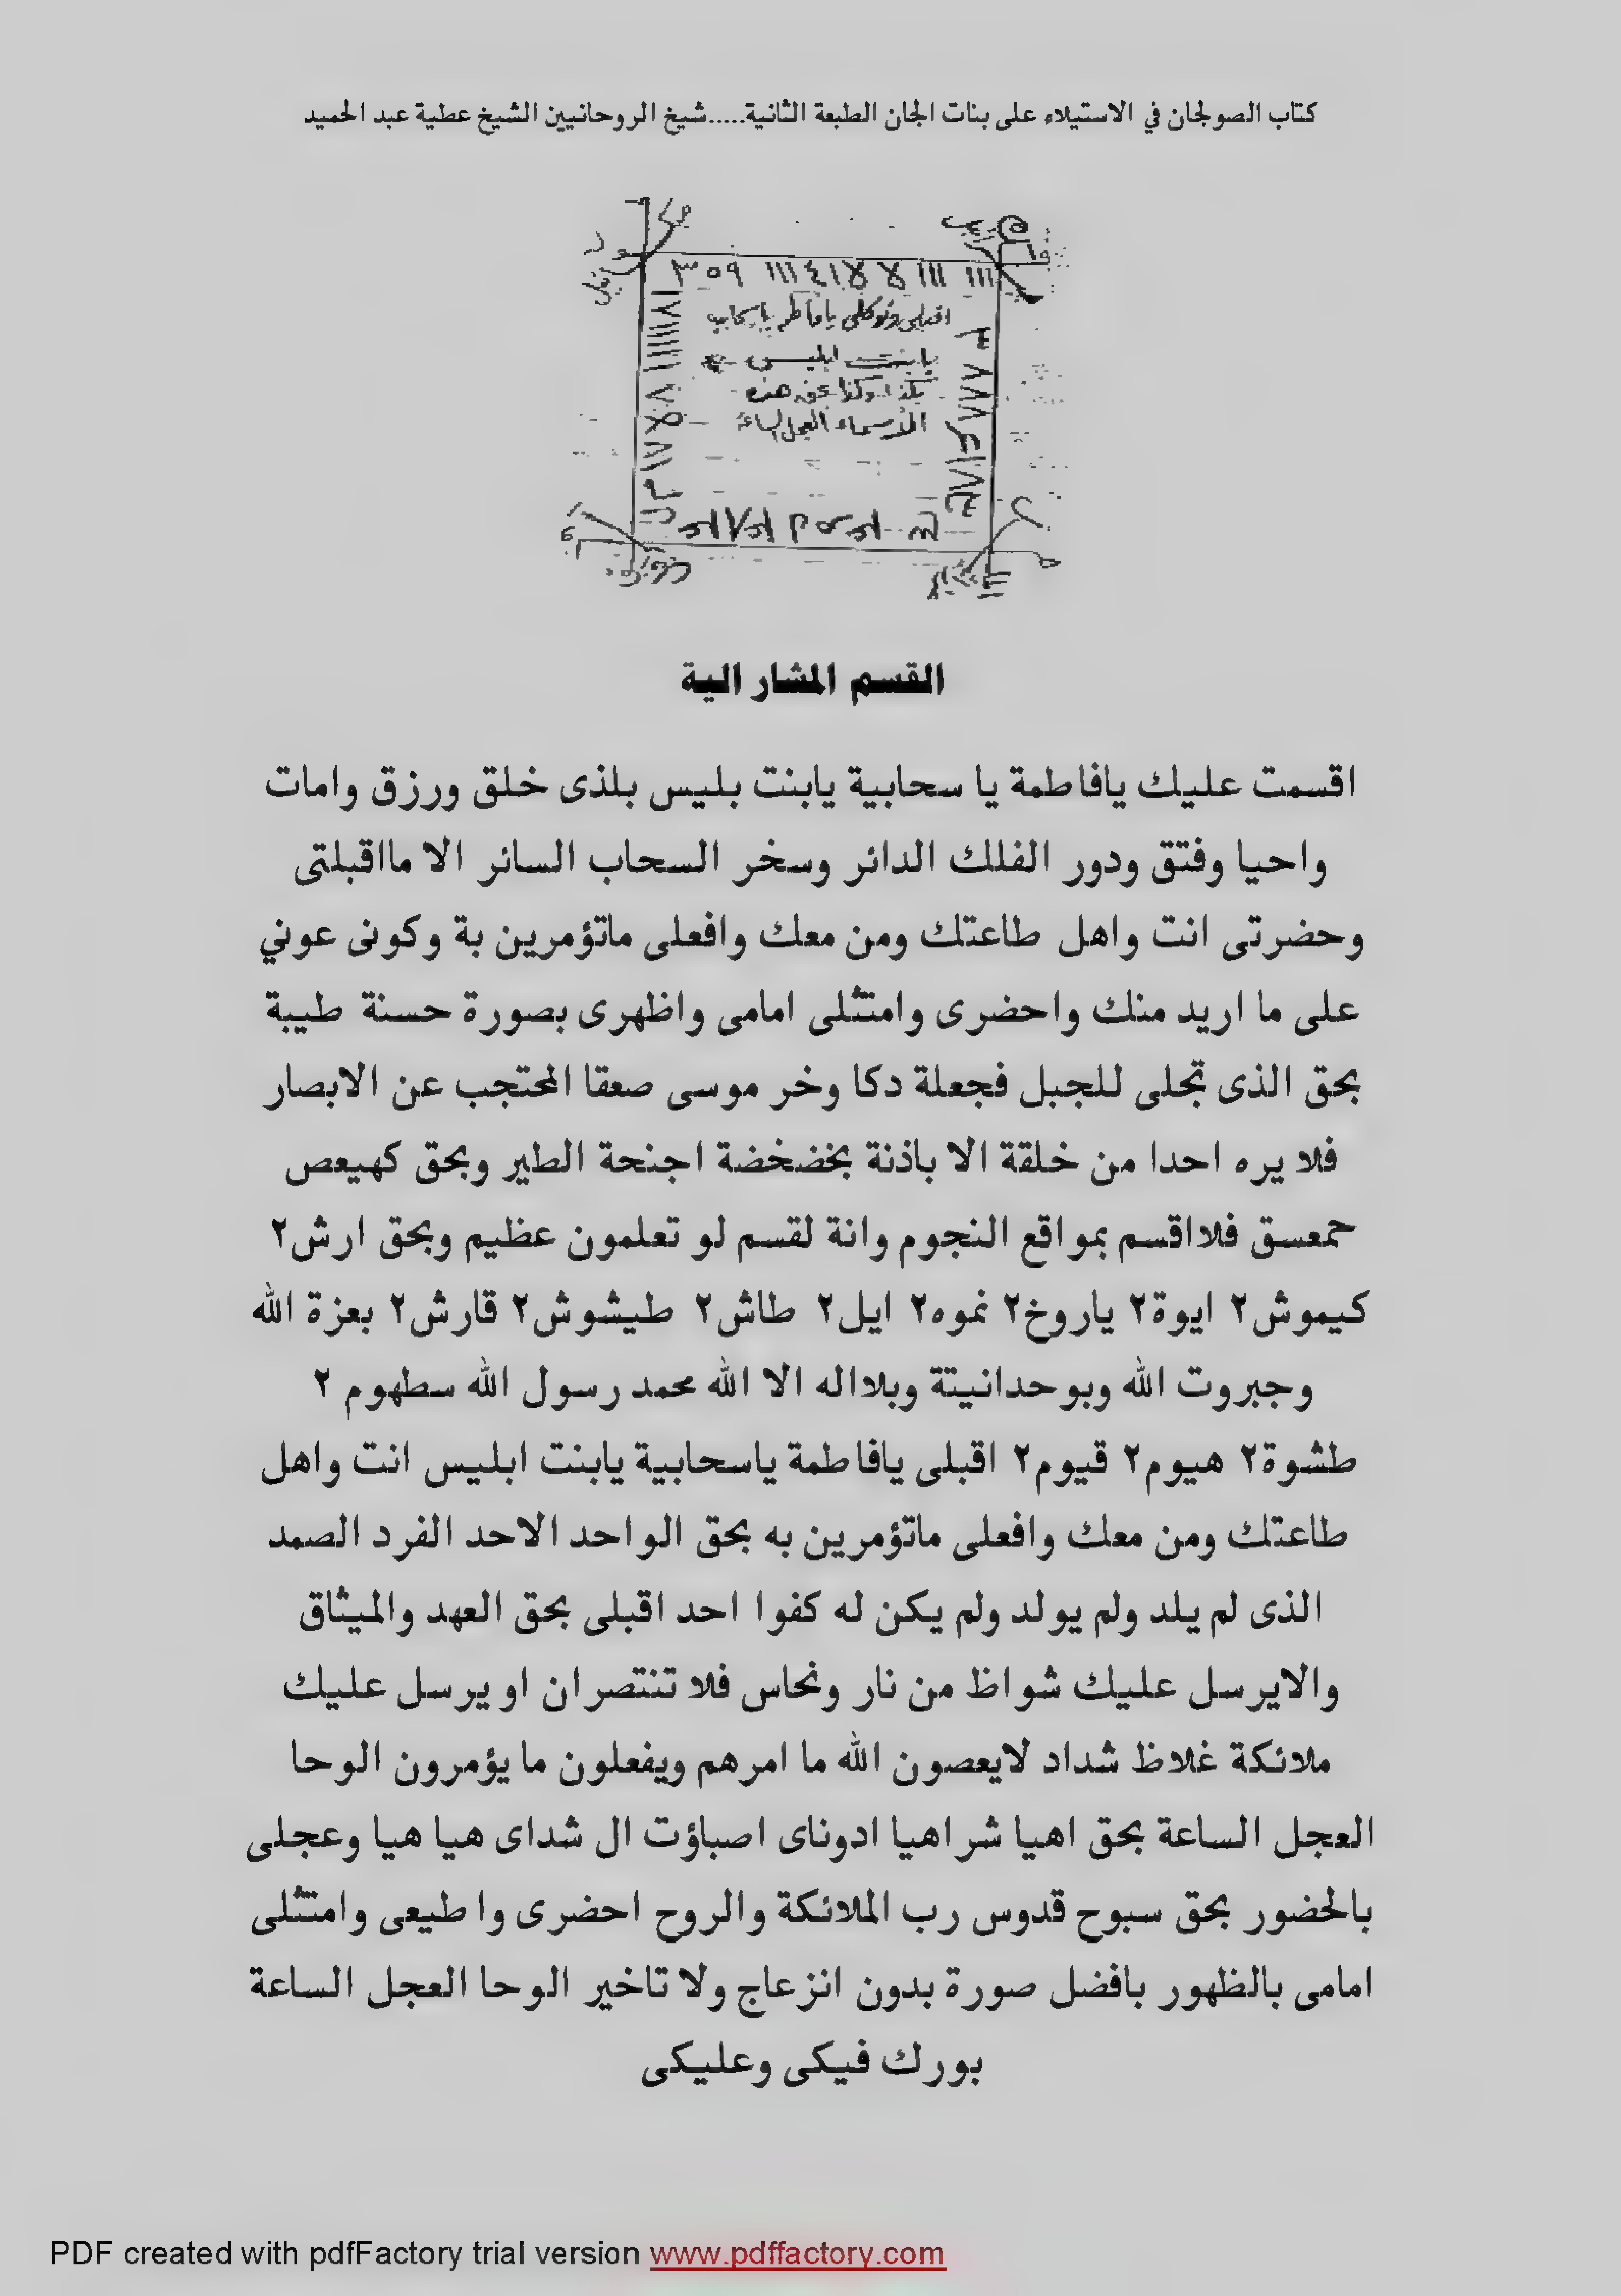 كتاب الصولجان في الاستيلاء على بنات الجان الطبعة الثانية.....شيخ الروحانيين الشيخ عطية عبد الحميد
٣٥٩ ١١١٤١لا لا ١١١ ١١١
يابنت ابليس
بكذا وكذا بحق هذه
الأسماء العجل الساعة
القسم المشار الية
اقسمت عليك يافاطمة يا سحابية يابنت بليس بلذى خلق ورزق وامات
واحيا وفتق ودور الفلك الدائر وسخر السحاب السائر الا مااقبلتى
وحضرتى انت واهل طاعتك ومن معك وافعلى ماتؤمرين بة وكونى عوني
على ما اريد منك واحضرى وامتثلى امامى واظهرى بصورة حسنة طيبة
بحق الذى تجلى للجبل فجعلة دكا وخر موسى صعقا المحتجب عن الابصار
فلا يره احدا من خلقة الا باذنة بخضخضة اجنحة الطير وبحق كهيعص
حمعسق فلااقسم بمواقع النجوم وانة لقسم لو تعلمون عظيم وبحق ارش٢
كيموش٢ ايوة٢ ياروخ٢ نموه٢ ايل٢ طاش٢ طيشوش٢ قارش٢ بعزة الله
وجبروت الله وبوحدانيتة وبلااله الا الله محمد رسول الله سطهوم ٢
طشوة٢ هيوم٢ قيوم٢ اقبلى يافاطمة ياسحابية يابنت ابليس انت واهل
طاعتك ومن معك وافعلى ماتؤمرين به بحق الواحد الاحد الفرد الصمد
الذى لم يلد ولم يولد ولم يكن له كفوا احد اقبلى بحق العهد والميثاق
والايرسل عليك شواظ من نار ونحاس فلا تنتصران او يرسل عليك
ملائكة غلاظ شداد لايعصون الله ما امرهم ويفعلون ما يؤمرون الوحا
العجل الساعة بحق اهيا شراهيا ادوناى اصباؤت ال شداى هيا هيا وعجلى
بالحضور بحق سبوح قدوس رب الملائكة والروح احضرى واطيعى وامتثلى
امامى بالظهور بافضل صورة بدون انزعاج ولا تاخير الوحا العجل الساعة
بورك فيكى وعليكى
PDF created with pdfFactory trial version www.pdffactory.com